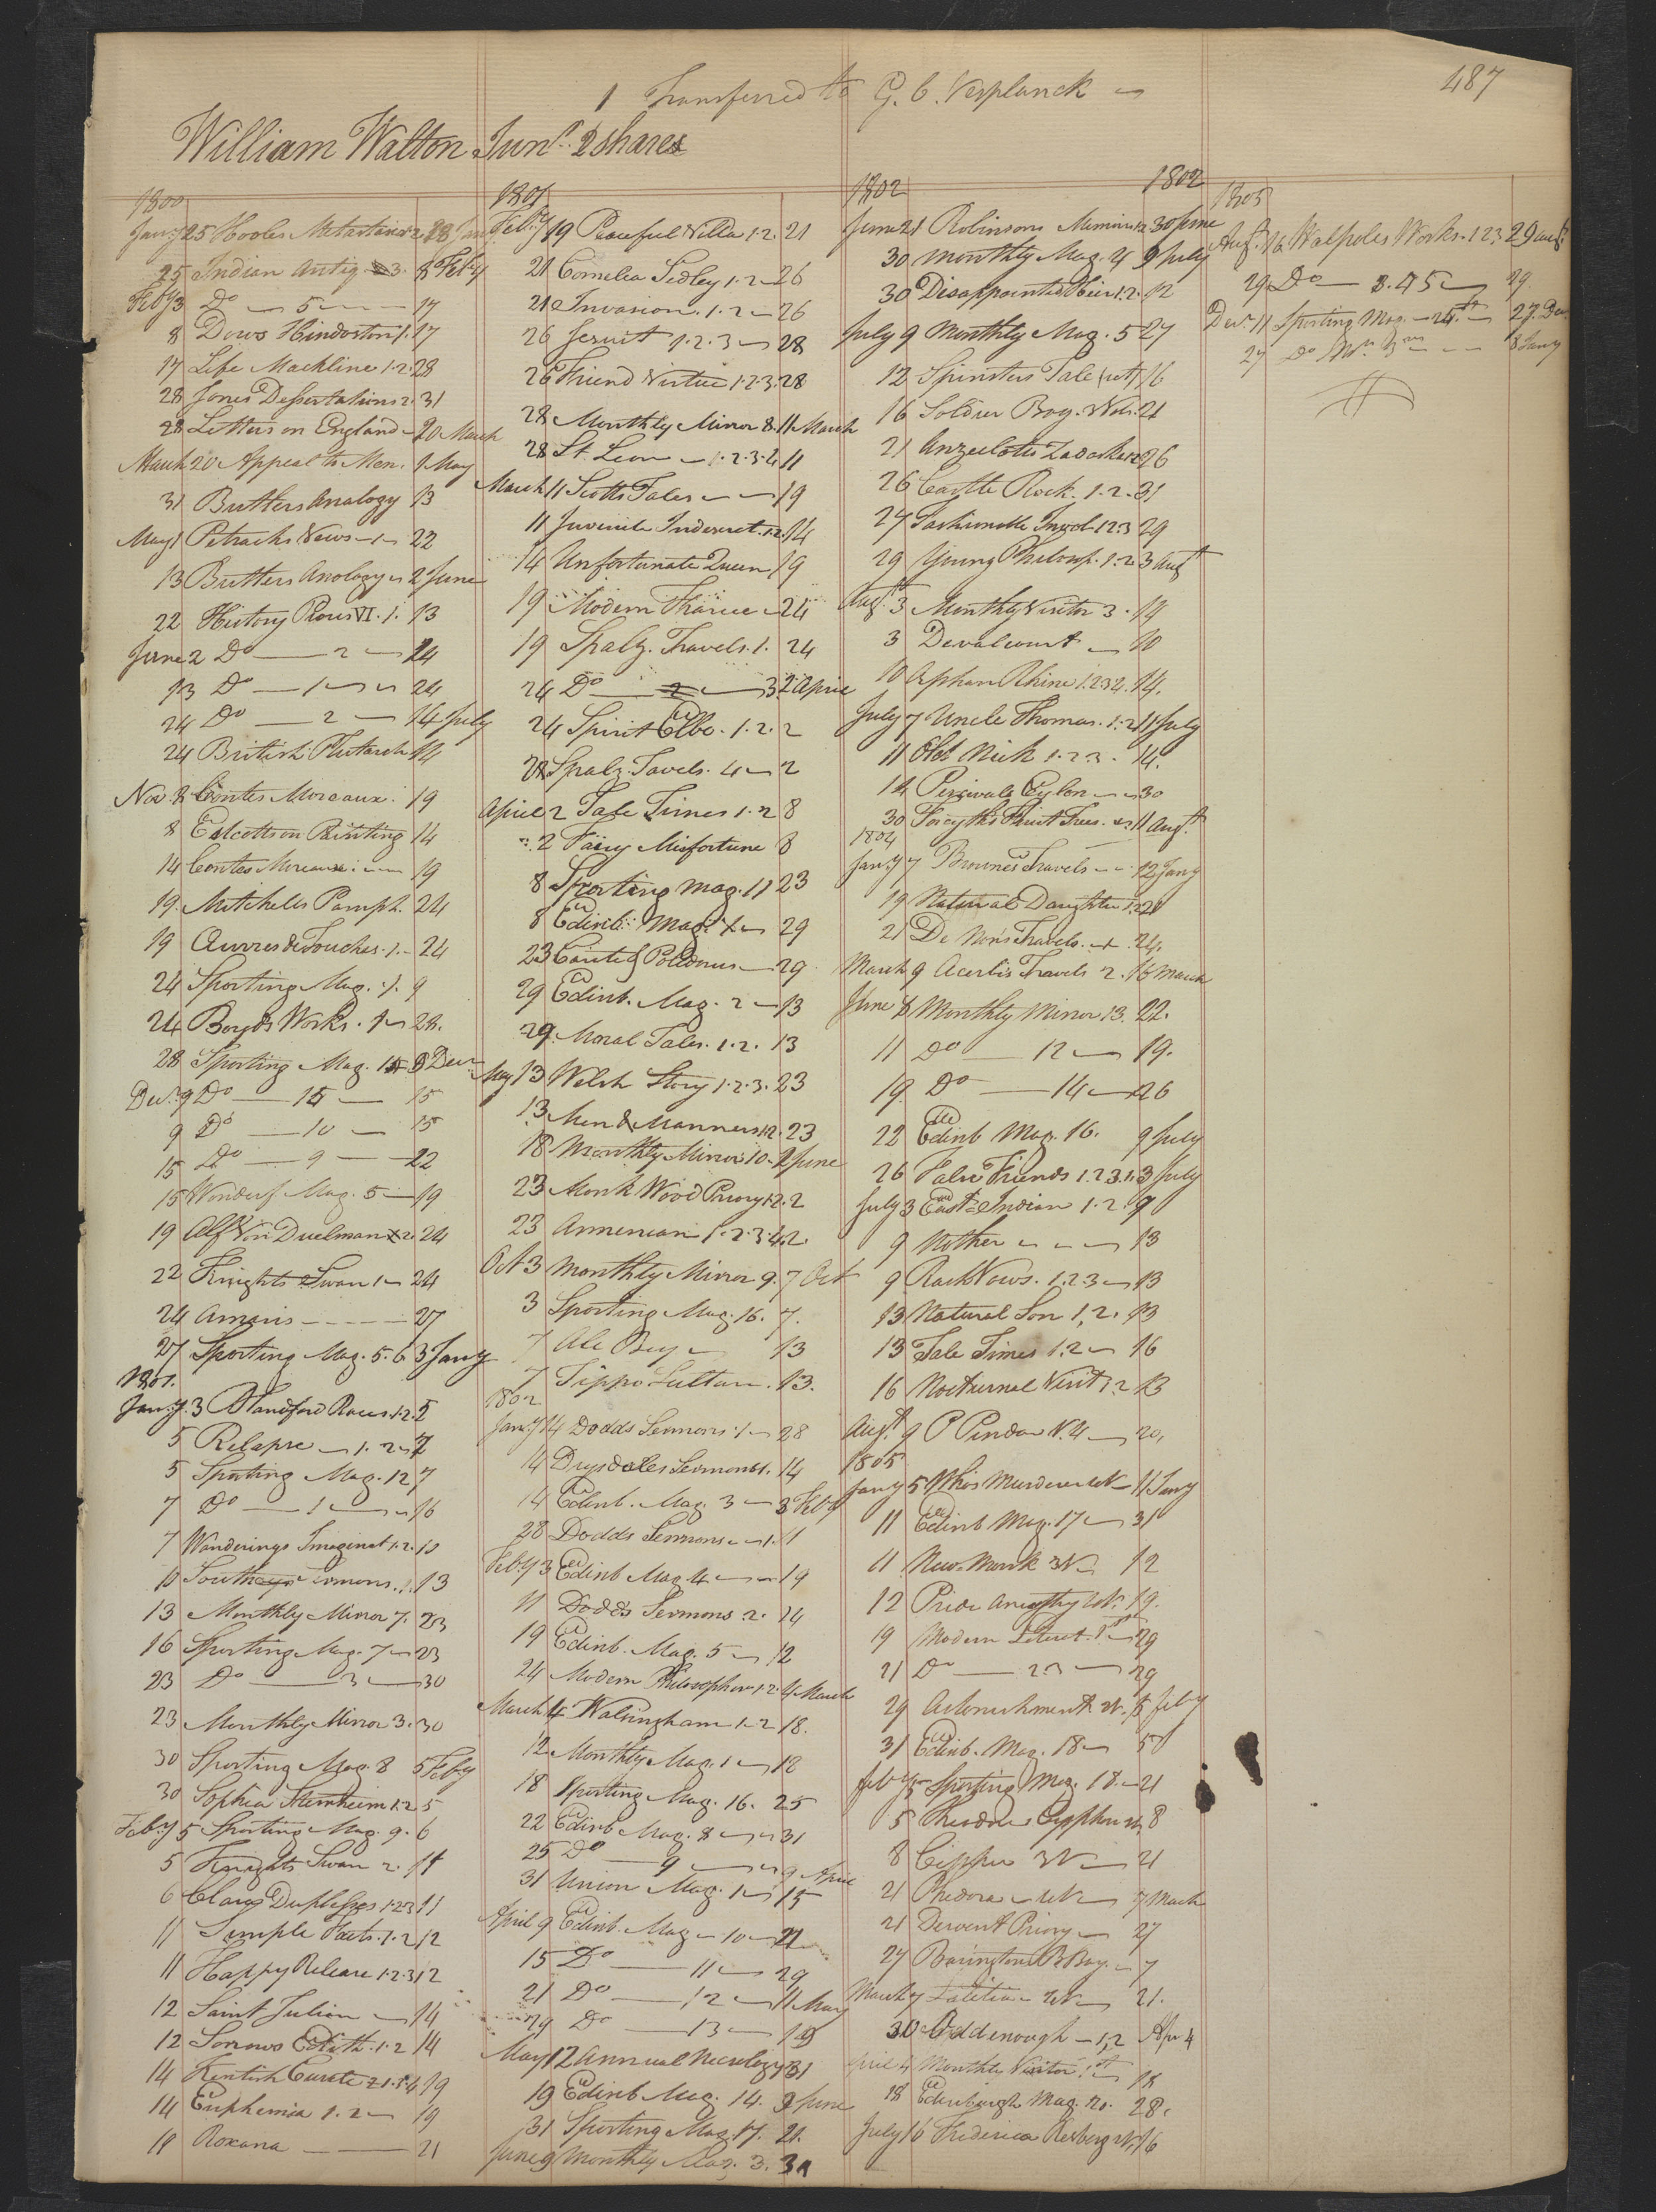 487
1 Transferred to G. C. Verplanck
William Walton Junr. 2 shares
1800
Jany 25 Hooles Metastasio 2 28 Jany
25 Indian Antiq. 3. 8 Feby
Feby 3 Do 5 17
8 Dows Hindostan 1. 17
17 Life Mackline 1.2. 28
28 Jones Dessertations 2. 31
28 Letters on England 20 March
March 20 Appeal to Men. 1 May
31 Buttlers Analogy 13
May 1 Petrachs Views 1 22
13 Buttlers Anology 2 June
22 History Pious VI. 1. 13
June 2 Do 2 24
13 Do 1 24
24 Do 2 14 July
24 British Plutarch 14
Nov. 8 Contes Moreaux. 19
8 Calcott on Painting 14
14 Contes Moreaux 19
19. Mitchells Pamph. 24
19 Œuvres de Touches. 1. 24
24 Sporting Mag. 1. 9
24 Boyds Works. 1 28.
28 Sporting Mag. 15 9 Decr
Decr. 9 Do 15 15
9 Do 10 15
15 Do 9 22
15 Wonderf Mag. 5 19
19 Alf Von Duelman 2. 24
22 Knights Swan 1 24
24 Amaris 27
27 Sporting Mag. 5. 6 3 Jany
1801.
Jany. 3 Blandford Races 1.2. 5
5 Relapse 1. 2 7
5 Sporting Mag. 12 7
7 Do 1 16
7 Wanderings Imaginat 1.2. 10
10 Southeys Sermons. 1. 13
13 Monthly Mirror 7. 23
16 Sporting Mag. 7 23
23 Do 3 30
23 Monthly Mirror 3. 30
30 Sporting Mag. 8 5 Feby
30 Sophia Sternheim 1.2 5
Feby 5 Sporting Mag. 9. 6
5 Knights Swan 2. 11
6 Clara Duplesses 1.2.3 11
11 Simple Facts. 1. 2 12
11 Happy Release 1.2.3 12
12 Saint Julien 14
12 Sorrows Edith. 1.2 14
14 Kentish Curate 1. 4 19
14 Euphemia 1. 2 19
19 Roxana 21
1801
Feby 19 Peaceful Villa 1.2. 21
21 Cornelia Sedley 1.2 26
21 Invasion. 1. 2 26
26 Jesuit 1.2.3 28
26 Friend Virtue 1.2.3. 28
28 Monthly Mirror 8. 11 March
28 St. Leon 1.2.3.4 11
March 11 Scotts Tales 19
11 Juvenile Indescret. 1.2. 14
14 Unfortunate Queen 19
19 Modern Tharice 24
19 Spalz. Travels. 1. 24
24 Do 3. 2 April
24 Spirit Elbe. 1.2. 2
28 Spalz. Tavels. 4 2
April 2 Tale Times 1.2 8
2 Fairy Misfortune 8
8 Sporting Mag. 11 23
8 Edinb: Mag. 1 29
23 Cante of Poledmus 29
29 Edinb. Mag. 2 13
29. Moral Tales. 1.2. 13
May 13 Welsh Story 1.2.3. 23
13. Men & Manners 1.2. 23
18 Monthly Mirror 10. 2 June
23 Monk Wood Priory 1.2. 2
23 Armenian 1.2.3.4. 2.
Oct 3 Monthly Mirror 9. 7 Oct
3 Sporting Mag. 16. 7.
7 Ale Bey 13
7 Tippo Sultan. 13.
1802
Jany 14 Dodds Sermons. 1 28
14 Drysdales Sermons 1. 14
14 Edinb. Mag. 3 3 Feby
28 Dodds Sermons 1. 11
Feby 3 Edinb Mag. 4 19
11 Dodds Sermons .2. 24
19 Edinb. Mag. 5 12
24 Modern Philosopher 1.2. 4 March
March 4 Walsingham 1.2 18.
12 Monthly Mag. 1 18
18 Sporting Mag. 16. 25
22 Edinb Mag. 8 31
25 Do 9 9 April
31 Union Mag. 1 15
April 9 Edinb. Mag 10 21
15 Do 11 29
21 Do 12 11 May
29 Do 13 19
May 12 Annual Necrology 31
19 Edinb Mag. 14. 9 June
31 Sporting Mag. 17. 21.
June 9 Monthly Mag. 3. 30
1802 1802
June 21 Robinsons Memoirs 1.2 30 June
30 Monthly Mag. 4 9 July
30 Disappointed Heir 1.2. 12
July 9 Monthly Mag. 5 27
12 Spinsters Tale 16
16 Soldier Boy. 3 Vols. 21
21 Anzeelotte Zadaskers 26
26 Castle Rock. 1. 2. 31
27 Fashionable Invol. 1.2.3 29
29 Young Philosop. 1. 2. 3 Augt
Augt. 3 Monthly Visitor 3. 14
3 Devalcourt 10
10 Orphan Rhine 1.2.3.4. 14.
July 7 Uncle Thomas. 1.2 11 July
11 Old Nick 1.2.3. 14.
14 Percivals Ceylon 30
30 Forcyths Fruit Trees. 11 Augt.
1804
Jany 7 Brownes Travels 12 Jany
19 Natural Daughter 1.2 21
21 De Nons Travels. 24.
March 9 Acerbis Travels 2. 16 March
June 8 Monthly Mirror 13. 22.
11 Do 12 19.
19. Do 14 26
22 Edinb Mag. 16. 9 July
26 False Friends 1.2.3. 3 July
July 3 East Indian 1.2. 9
9 Mother 13
9 Rash Vows. 1.2.3 13
13 Natural Son 1, 2. 13
13 Tale Times 1.2 16
16 Nocturnal Visit 1.2 23
Augt 9 P Pindar N. 4 20,
1805
Jany 5 Whos Murderer 11 Jany
11 Edinb Mag. 17 31
11 New Monk 3V. 12
12 Price Anecthy 19.
19 Modern Literat. 1st 29
21 Do 2.3 29
29 Astonishment 5 Feby
31 Edinb. Mag. 18 5
Feby 5 Sporting Mag. 18. 21
5 Theodore Cypphon 8
8 Cipper 3V 21
21 Phedora 7 March
21 Dervent Priory 27
27 Barringtons B Bay. 7
March 7 Latitia 21.
30 Odd enough 1,2 Apr 4
April 4 Monthly Visitor 1st 18
18 Edenburgh Mag. 20. 28.
July 16 Frederica Resberg 16
1805
Augt. 16 Walpoles Works. 1 2 3 29 Augt
29 Do 3. 4 5 29.
Decr. 11 Sporting Mag. 24th 27. Decr
27 Do 8 Jany